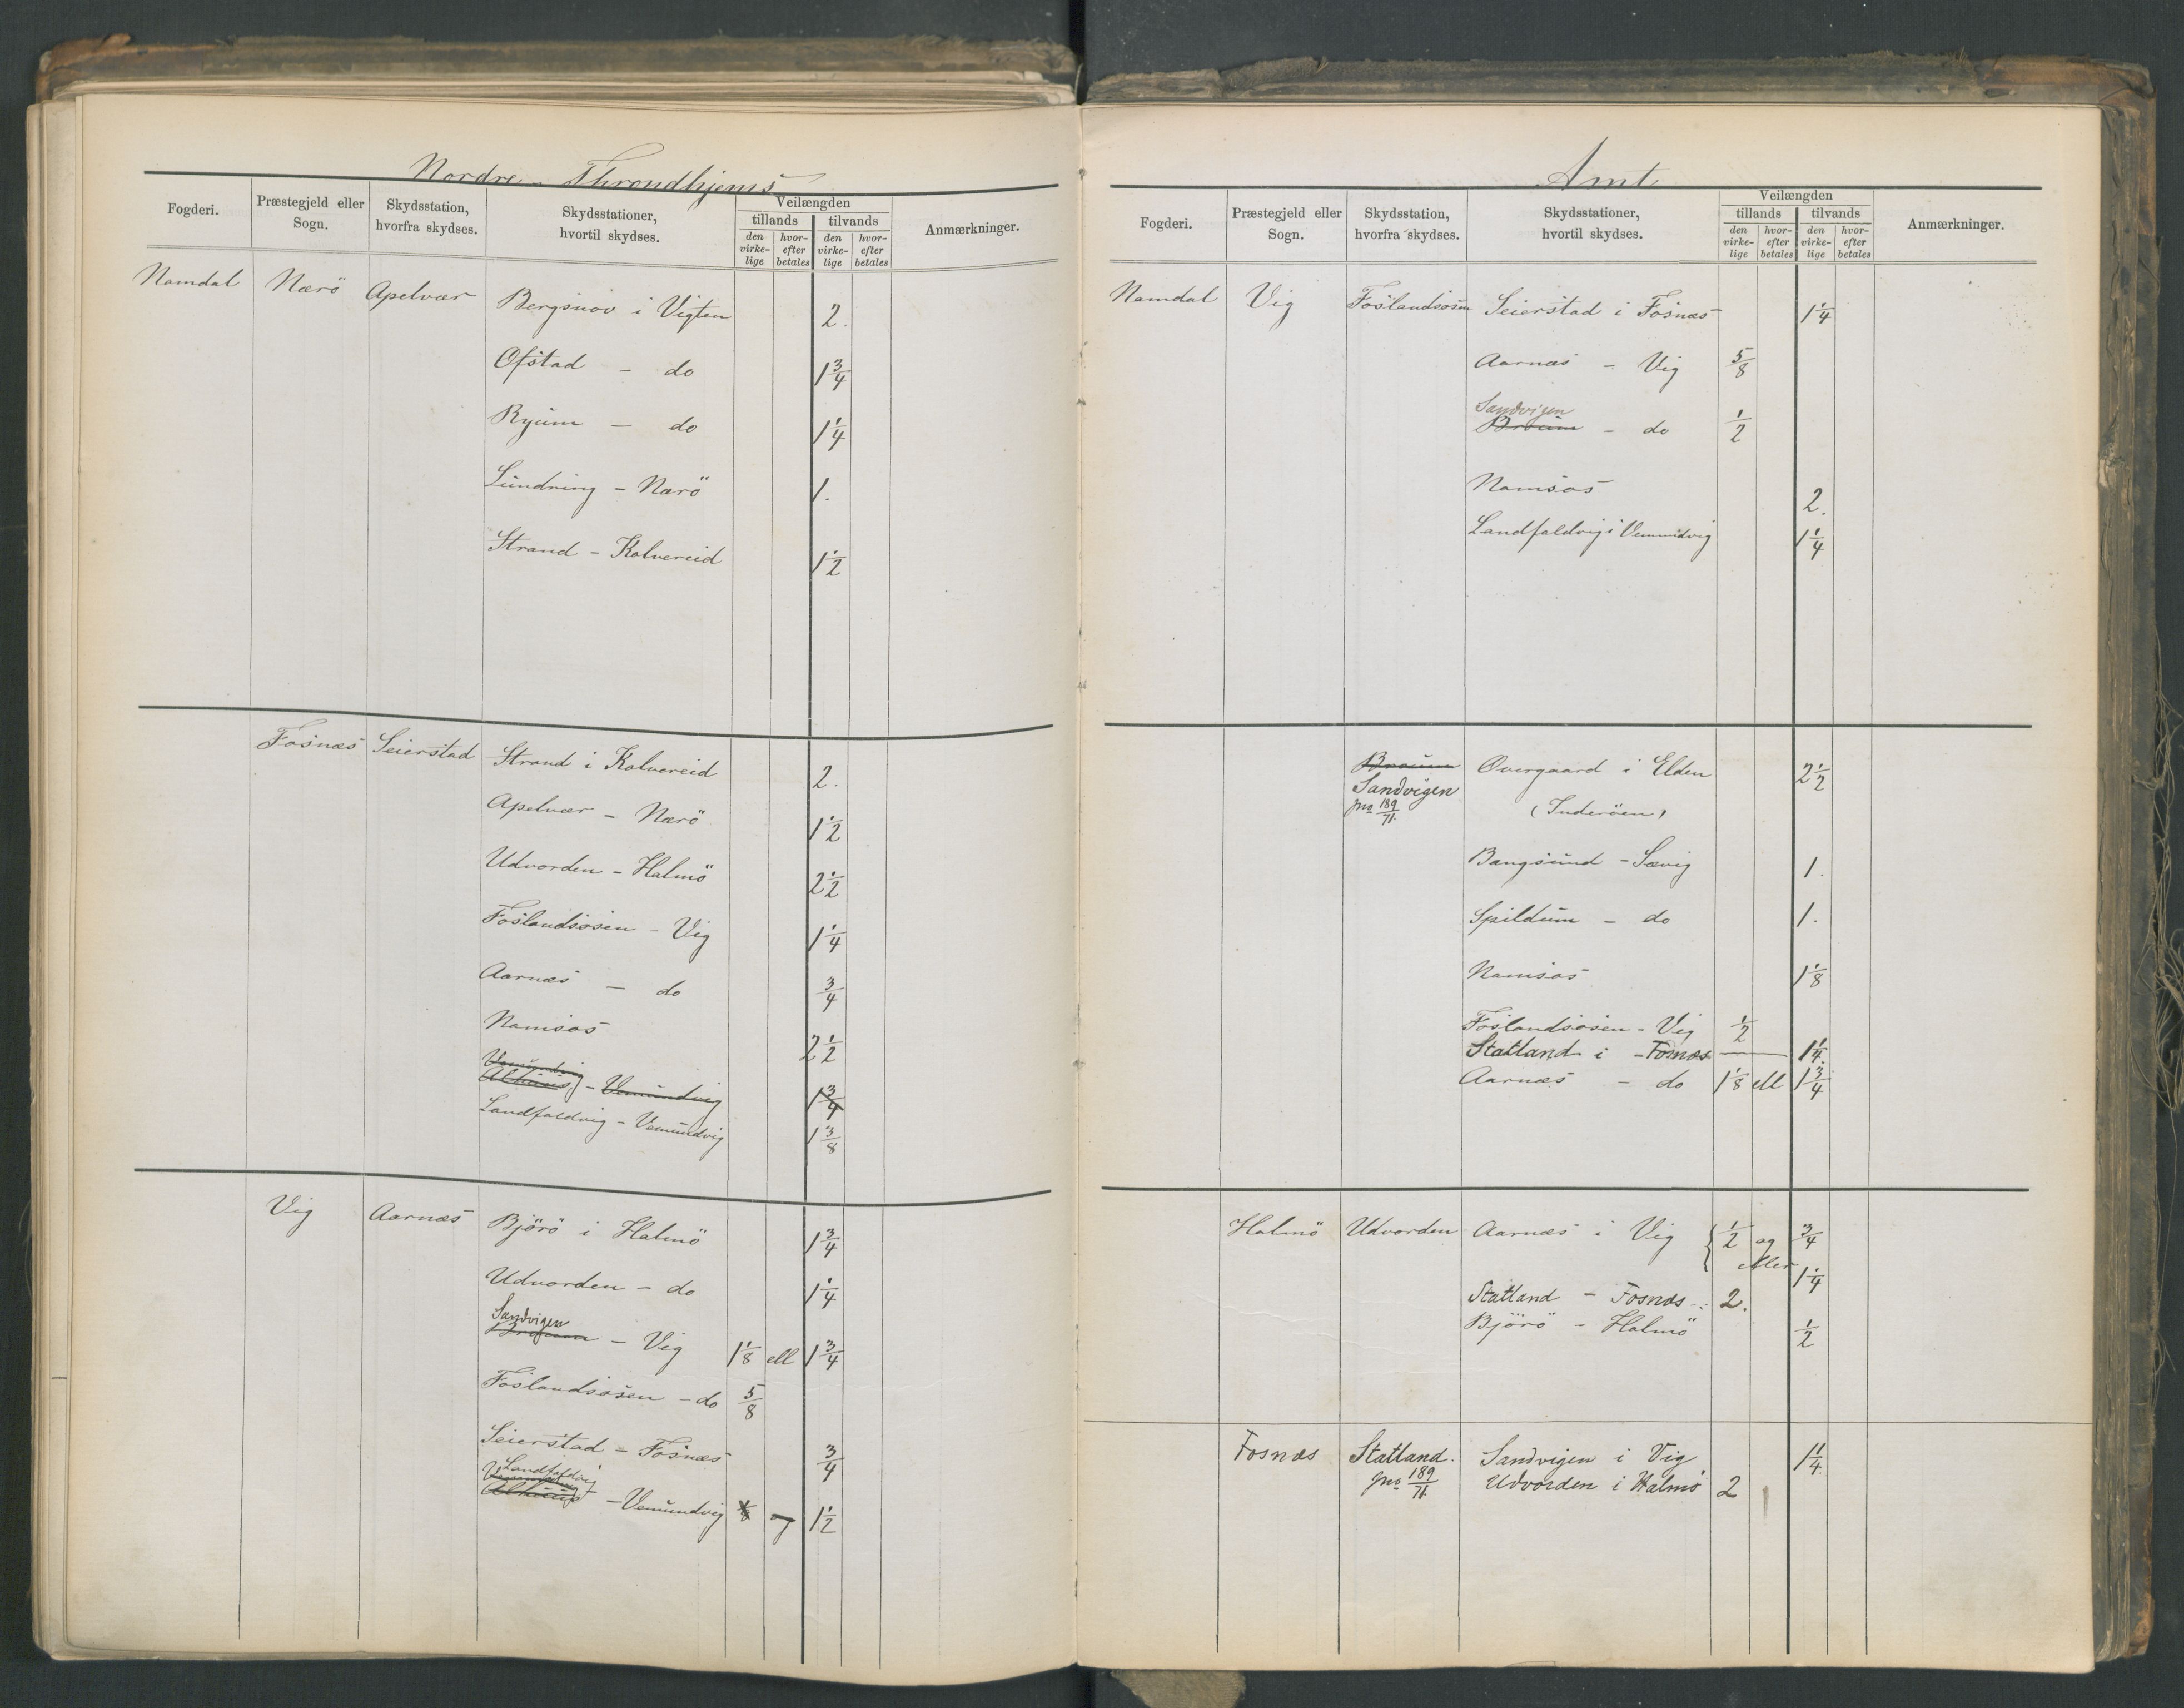 Nordre - Throndhjems
Fogderi. Præstegjeld eller Sogn. Skydsstation, hvorfra skydses. Skydsstationer, hvortil skydses. Veilængden Anmærkninger.
tillands tilvands
den virkelige hvorefter betales den virkelige hvorefter betales
Namdal Nærö Apelvær Bergsnov i Vigten 2.
Ofstad - do 1 3/4
Ryum - do 1 1/4
Lundring - Nærö 1.
Strand - Kolvereid 1 1/2
Fosnæs Seierstad Strand i Kolvereid 2.
Apelvær - Nærö 1 1/2
Udvorden - Halmö 2 1/2
Foslandsosen - Vig 1 1/4
Aarnæs - do 3/4
Namsos 2 1/2
Vemundvig
- Vemundvig 1 3/4
Landfaldvig - Vemundvig 1 3/8
Vig Aarnæs Björö i Halmö 1 3/4
Udvorden - do 1 1/4
Sandvigen
Broum - Vig 1 1/8 ell 1 3/4
Foslandsosen - do 5/8
Seierstad - Fosnæs 3/4
Landfaldvig
- Vemundvig og 1 1/2
Amt
Fogderi. Præstegjeld eller Sogn. Skydsstation, hvorfra skydses. Skydsstationer, hvortil skydses. Veilængden Anmærkninger.
tillands tilvands
den virkelige hvorefter betales den virkelige hvorefter betales
Namdal Vig Foslandsosen Seierstad i Fosnæs 1 1/4
Aarnæs - Vig 5/8
Sandvigen
Broum - do 1/2
Namsos 2.
Landfaldvig i Vemundvig 1 1/4
Broum Overgaard i Elden 2 1/2
Sandvigen
Jno 189/71. (Inderöen)
Bangsund - Sævig 1.
Spildum - do 1.
Namsos 1 1/8
Foslandsosen - Vig 1/2
Statland i - Fosnæs 1 1/4.
Aarnæs - do 1 1/8 ell 1 3/4
Halmö Udvorden Aarnæs i Vig { 1/2 og 3/4
eller 1 1/4
Statland - Fosnæs 2.
Björö - Halmö 1/2
Fosnæs Statland. Sandvigen i Vig 1 1/4.
Jno 189/71. Udvorden i Halmö 2